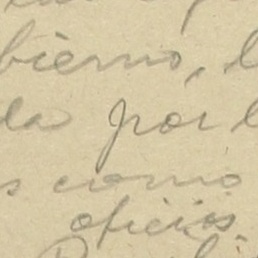 bierno, l
da por l
s como
oficios.